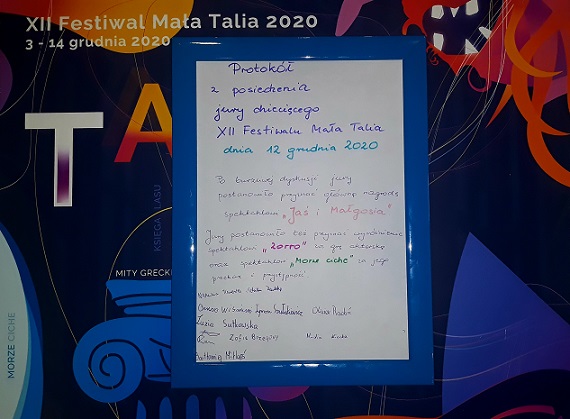 XII Festiwal Mała Talia 2020
3 - 14 grudnia 2020
TA
KSIĘGA LASU
MITY GRECKI
MORZE CICHE
Protokół
z posiedzenia
jury dziecięcego
XII Festiwalu Mała Talia
dnia 12 grudnia 2020
Po burzliwej dyskusji jury
postanowiło przyznać główną nagrodę
spektaklowi „Jaś i Małgosia"
Jury postanowiło też przyznać wyróżnienie
spektaklowi „Zorro" za grę aktorską
oraz spektaklowi „Morze ciche" za jego
Zuzia Sutkowska
Zofia